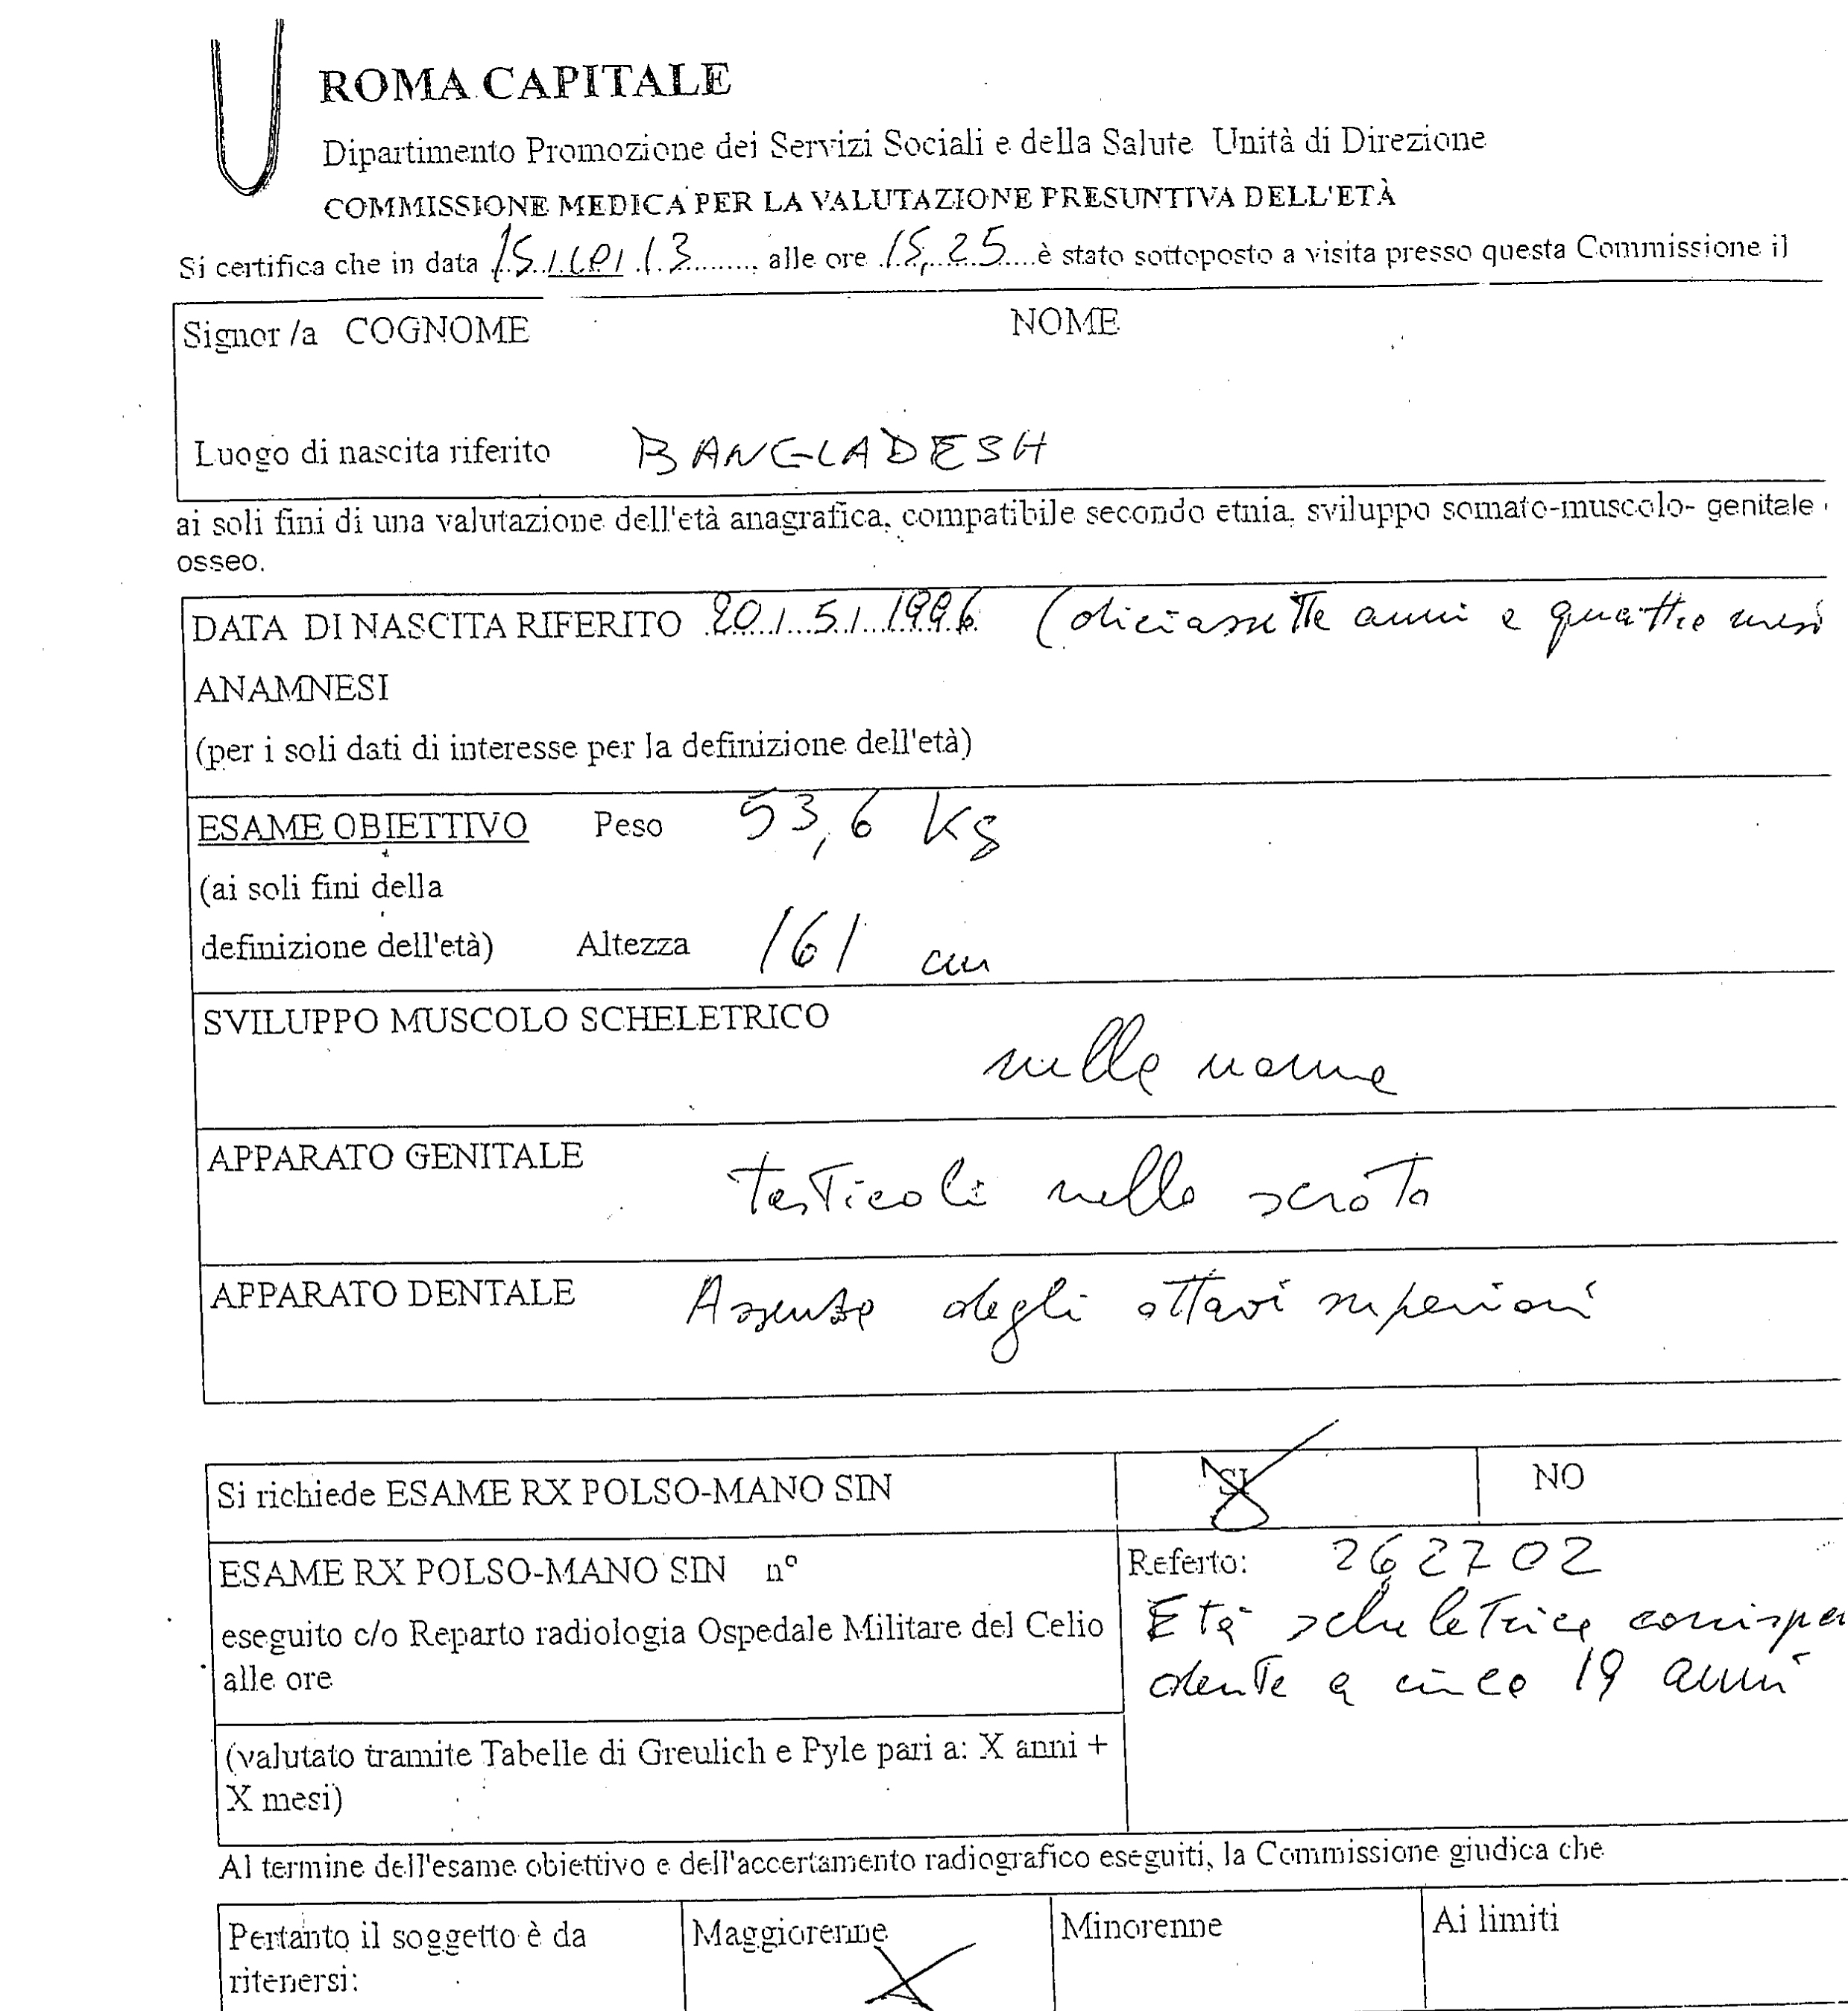 ROMA CAPITALE
Dipartimento Promozione dei Servizi Sociali e della Salute Unità di Direzione
COMMISSIONE MEDICA PER LA VALUTAZIONE PRESUNTIVA DELL'ETÀ
Si certifica che in data 15 / / 13 alle ore 15,25 è stato sottoposto a visita presso questa Commissione il
Signor /a COGNOME NOME
Luogo di nascita riferito BANGLADESH
ai soli fini di una valutazione dell'età anagrafica, compatibile secondo etnia, sviluppo somato-muscolo- genitale
osseo.
DATA DI NASCITA RIFERITO 20/5/1996 (diciassette anni e quattro mesi
ANAMNESI
(per i soli dati di interesse per la definizione dell'età)
ESAME OBIETTIVO Peso 53,6 Kg
(ai soli fini della
definizione dell'età) Altezza 161 cm
SVILUPPO MUSCOLO SCHELETRICO
nella norma
APPARATO GENITALE
testicoli nello scroto
APPARATO DENTALE Assenza degli ottavi superiori
Si richiede ESAME RX POLSO-MANO SIN SI NO
ESAME RX POLSO-MANO SIN n° Referto: 262702
eseguito c/o Reparto radiologia Ospedale Militare del Celio Età scheletrica corrispon
alle ore dente a circa 19 anni
(valutato tramite Tabelle di Greulich e Pyle pari a: X anni +
X mesi)
Al termine dell'esame obiettivo e dell'accertamento radiografico eseguiti, la Commissione giudica che
Pertanto il soggetto è da Maggiorenne Minorenne Ai limiti
ritenersi: X